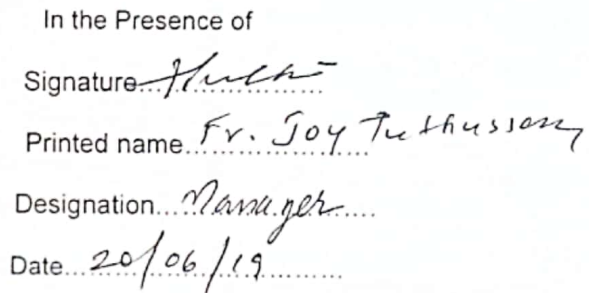 In the Presence of
Signature...
Printed name Fr. Joy
Designation....Manager.....
Date...20/06/19............